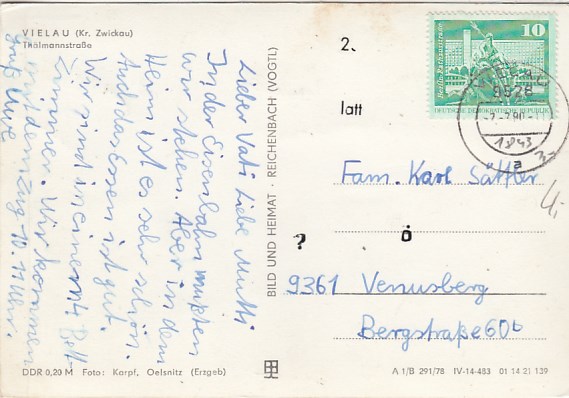 VIELAU (Kr. Zwickau)
Thälmannstraße
Lieber Vati Liebe Mutti
In der Eisenbahn mußten
wir stehen. Aber in dem
Heim ist es sehr schön.
Auch das Essen ist gut.
Wir sind in einem 4 Bett
Zimmer. Wir kommen
mit dem Zug 10.11 Uhr.
Gruß Uwe
BILD UND HEIMAT · REICHENBACH (VOGTL)
2.
latt
?
ö
10
DEUTSCHE DEMOKRATISCHE REPUBLIK
9528
Fam. Karl Sättler
9361 Venusberg
Bergstraße 60b
DDR 0,20 M Foto: Karpf, Oelsnitz (Erzgeb)
A 1/B 291/78 IV-14-483 01 14 21 139